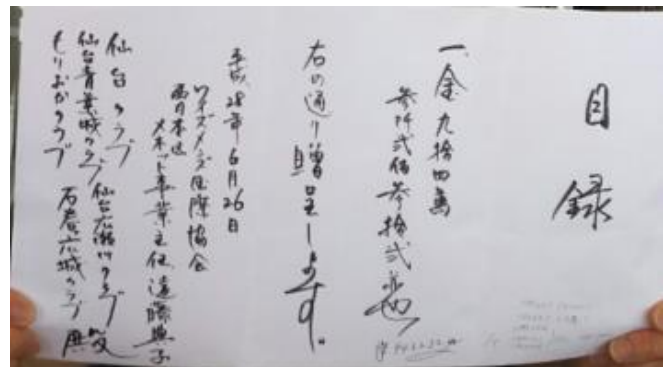 目録
一、金九拾四萬
参阡弐佰参拾弐也
右の通り贈呈します。
平成28年6月26日
ワイズメンズ国際協会
西日本区
メネット事業主任 遠藤典子
仙台クラブ
仙台青葉城クラブ 仙台広瀬川クラブ
もりおかクラブ 石巻広域クラブ 殿